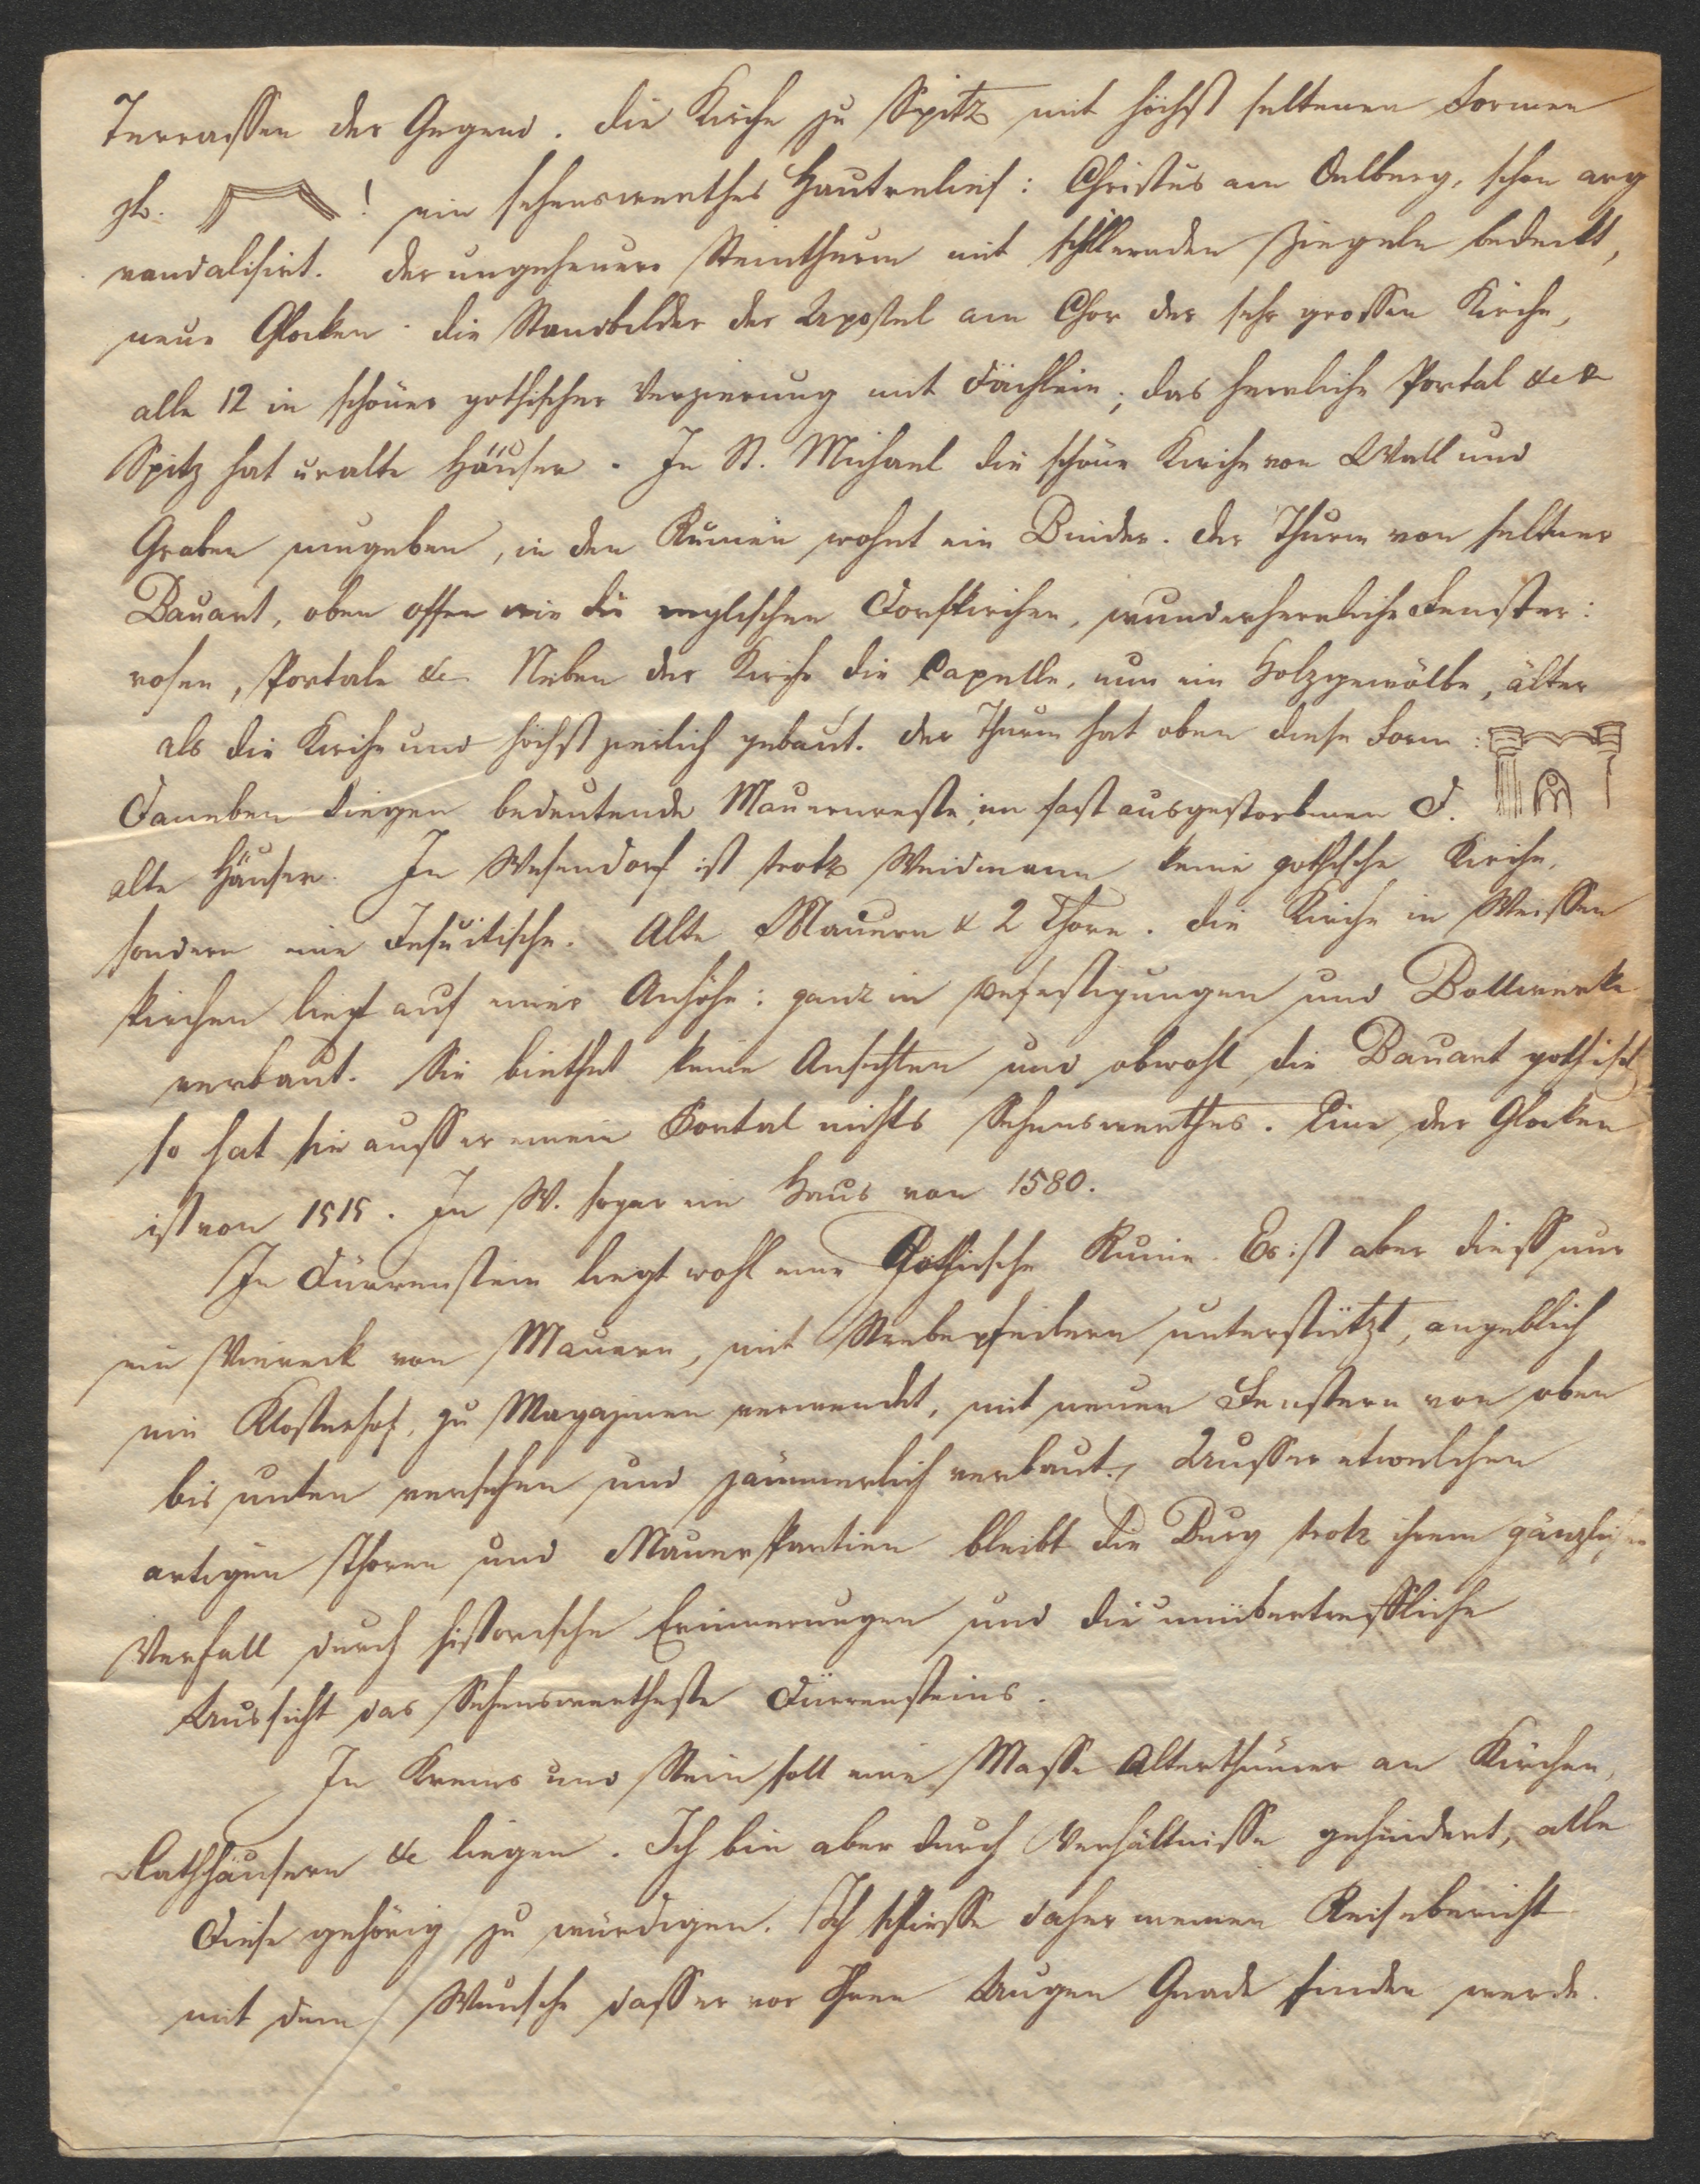 Terrassen der Gegend. Die Kirche zu Spitz mit höchst seltenen Formen
zb. ! ein sehenswerthes Hautrelief: Christus am Oelberg, schon arg
vandalisirt. Der ungeheure Steinthurm mit schillernden Ziegeln bedeckt,
neue Glocken. die Standbilder der Apostel am Chor der sehr grossen Kirche,
alle 12 in schöner gothischer Verzierung mit Dächlein; das herrliche Portal &c &c
Spitz hat uralte Häuser. In St. Michael die schöne Kirche von Wall und
Graben umgeben, in den Ruinen wohnt ein Binder. Der Thurm von seltner
Bauart, oben offen wie die englischen Dorfkirchen, wunderherrliche Fenster:
rosen, Portale &c Neben der Kirche die Capelle, nun ein Holzgewölbe, älter
als die Kirche und höchst zierlich gebaut. Der Thurm hat oben diese Form:
Daneben liegen bedeutende Mauernreste, im fast ausgestorbenen D.
alte Häuser. In Wesendorf ist trotz Weidmann keine gothische Kirche,
sondern eine Jesuitische. Alte Mauern & 2 Thore. Die Kirche in Weissen
kirchen liegt auf einer Anhöhe: ganz in Befestigungen und Bollwerke
verbaut. Sie biethet keine Ansichten und obwohl die Bauart gothisch
so hat sie ausser einem Portal nichts Sehenswerthes. Eine der Glocken
ist von 1515. In W. sogar ein Haus von 1580.
In Dürrenstein liegt wohl eine Gothische Ruine. Es ist aber diess nur
ein Viereck von Mauern, mit Strebepfeilern unterstützt, angeblich
ein Klosterhof, zu Magazinen verwendet, mit neuen Fenstern von oben
bis unten versehen und jämmerlich verbaut. Ausser etwelchen
artigen Thoren und Mauerpartien bleibt die Burg trotz ihrem gänzlichen
Verfall durch historische Erinnerungen und die unübertreffliche
Aussicht das Sehenswertheste Dürrensteins.
In Krems und Stein soll eine Masse Alterthümer an Kirchen,
Rathhäusern &c liegen. Ich bin aber durch Verhältnisse gehindert, alle
Diese gehörig zu würdigen. Ich schliesse daher meinen Reisebericht
mit dem Wunsche dass er vor Ihren Augen Gnade finden werde.